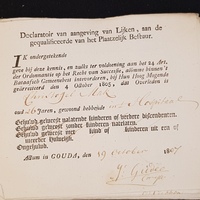 Declaratoir van aangeving van Lijken, aan de
gequalificeerde van het Plaatselijk Bestuur.
IK ondergetekende
geve bij deze kennis, en zulks ter voldoening aan het 24 Art.
der Ordonnantie op het Recht van Successie, alomme binnen 't
Bataafsch Gemeenebest intevorderen, bij Hun Hoog Mogende
gearresteerd den 4 October 1805, dat Overleden is
oud 26 Jaren, gewoond hebbende
Gehuuwd geweest, nalatende kinderen of verdere descendenten.
Gehuuwd geweest zonder kinderen.
Gehuuwd geweest met kind of kinderen uit een of
meerder huwelijk.
Ongehuuwd.
Actum in GOUDA, den 19 October 1807